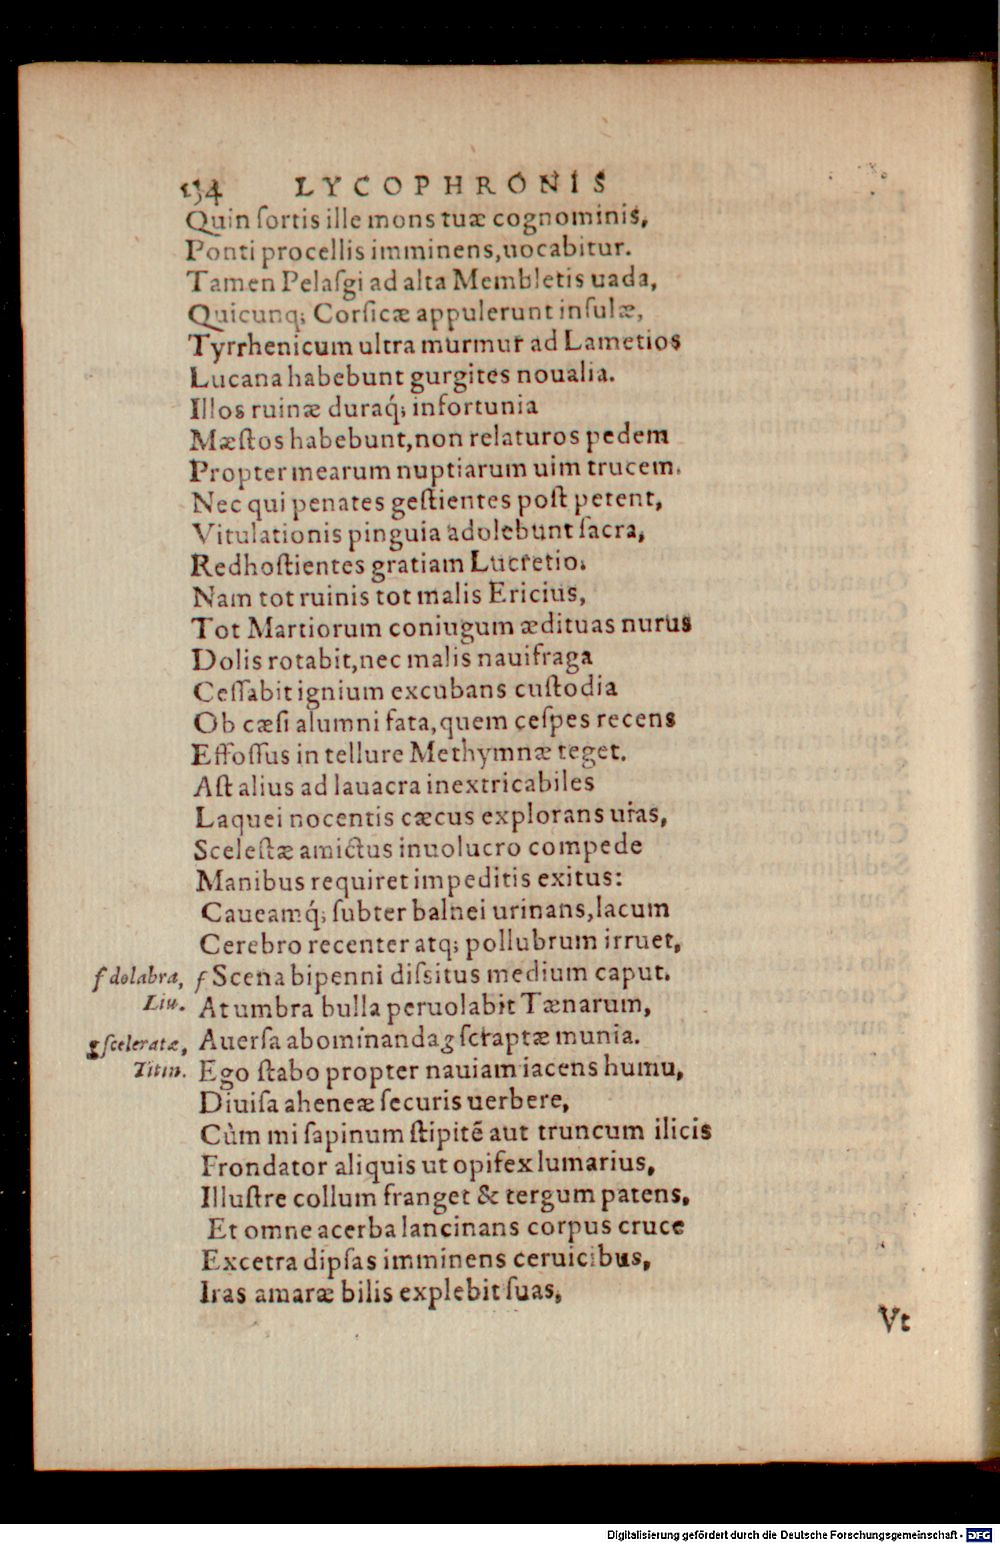 134 LYCOPHRONIS
Quin ſortis ille mons tuæ cognominis,
Ponti procellis imminens,uocabitur.
Tamen Pelaſgi ad alta Membletis uada,
Quicunq; Corſicæ appulerunt inſulæ,
Tyrrhenicum ultra murmur ad Lametios
Lucana habebunt gurgites noualia.
Illos ruinæ duraq́; infortunia
Mæſtos habebunt,non relaturos pedem
Propter mearum nuptiarum uim trucem.
Nec qui penates geſtientes poſt petent,
Vitulationis pinguia adolebunt ſacra,
Redhoſtientes gratiam Lucretio.
Nam tot ruinis tot malis Ericius,
Tot Martiorum coniugum ædituas nurus
Dolis rotabit,nec malis nauifraga
Ceſſabit ignium excubans cuſtodia
Ob cæſi alumni fata,quem ceſpes recens
Effoſſus in tellure Methymnæ teget.
Aſt alius ad lauacra inextricabiles
Laquei nocentis cæcus explorans uias,
Sceleſtæ amictus inuolucro compede
Manibus requiret impeditis exitus:
Caueamq́; ſubter balnei urinans,lacum
Cerebro recenter atq; pollubrum irruet,
f dolabra, f Scena bipenni diſsitus medium caput.
Liu. At umbra bulla peruolabit Tænarum,
g ſceleratæ, Auerſa abominanda g ſcraptæ munia.
Titin. Ego ſtabo propter nauiam iacens humu,
Diuiſa aheneæ ſecuris uerbere,
Cùm mi ſapinum ſtipitẽ aut truncum ilicis
Frondator aliquis ut opifex lumarius,
Illuſtre collum franget & tergum patens,
Et omne acerba lancinans corpus cruce
Excetra dipſas imminens ceruicibus,
Iras amaræ bilis explebit ſuas,
Vt
Digitalisierung gefördert durch die Deutsche Forschungsgemeinschaft - DFG